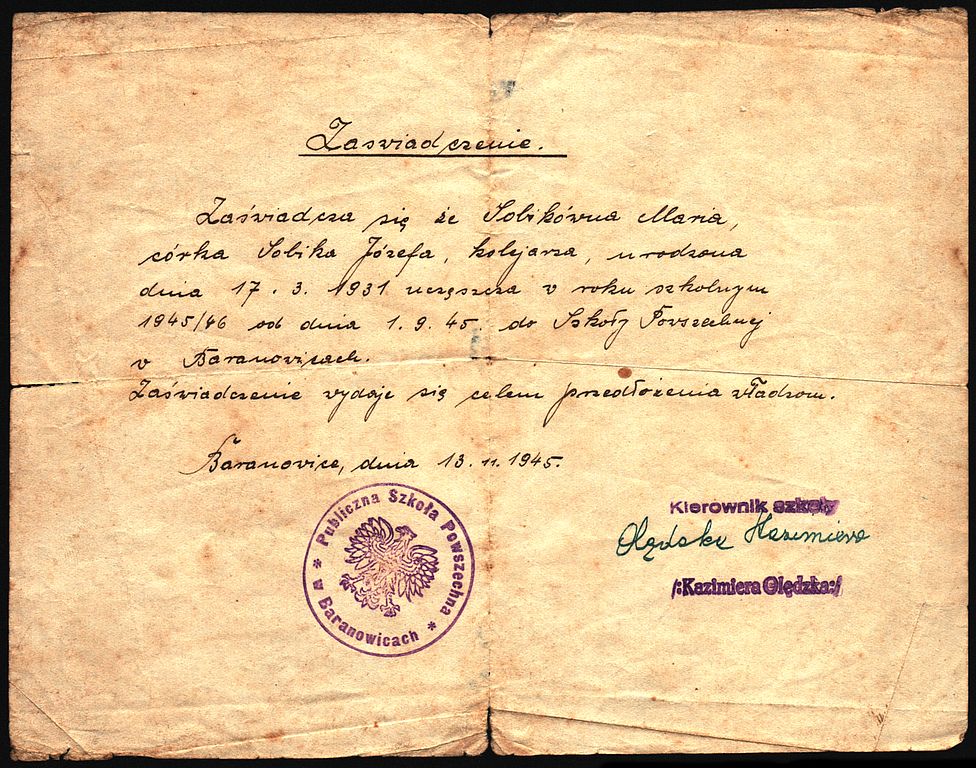 Zaświadczenie.
Zaświadcza się że Sobikówna Maria,
córka Sobika Józefa, kolejarza, urodzona
dnia 17. 3. 1931 uczęszcza w roku szkolnym
1945/46 od dnia 1. 9. 45. do Szkoły Powszechnej
w Baranowicach.
Zaświadczenie wydaje się celem przedłożenia władzom.
Baranowice, dnia 13. 11. 1945.
* Publiczna Szkoła Powszechna *
w Baranowicach
Kierownik szkoły
Olędzka Kazimiera
/:Kazimiera Olędzka:/